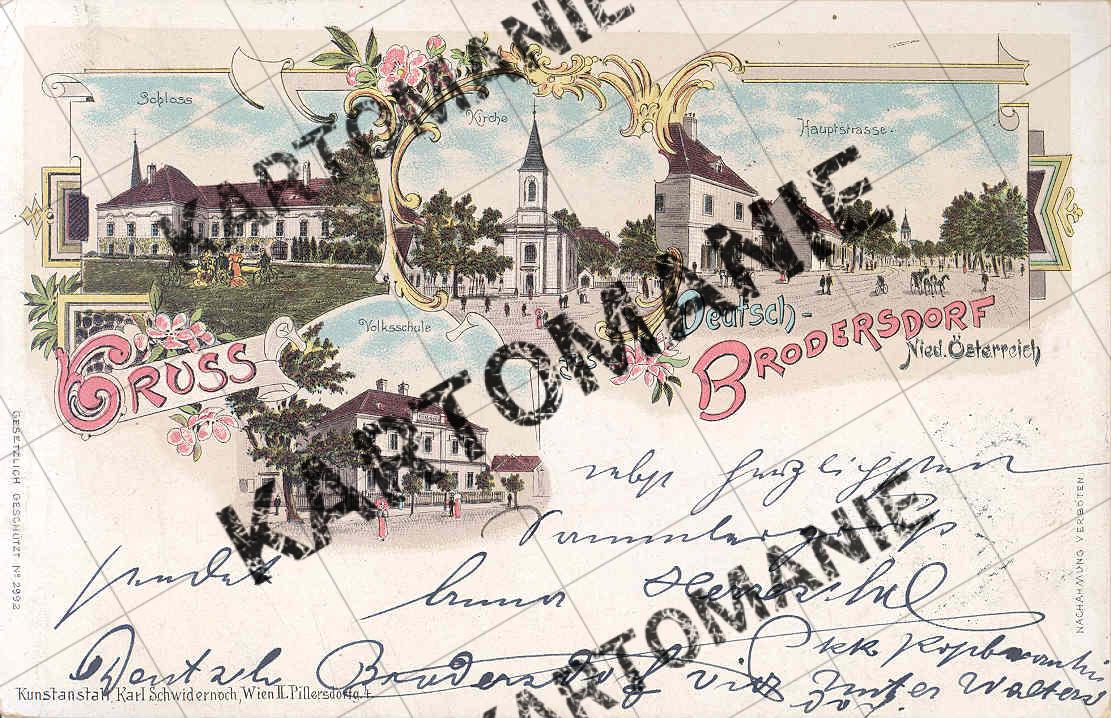 Schloss
Kirche
Hauptstrasse.
Volksschule
GRUSS
aus
Deutsch-
BRODERSDORF
Nied. Österreich
GESETZLICH GESCHÜTZT No 2992
NACHAHMUNG VERBOTEN
nebst herzlichsten
Sammlergruß
sendet
Deutsch Brodersdorf
Unter Walters
dorf
Kunstanstalt Karl Schwidernoch, Wien II. Pillersdorfg. 4
KARTOMANIE
KARTOMANIE
KARTOMANIE
KARTOMANIE